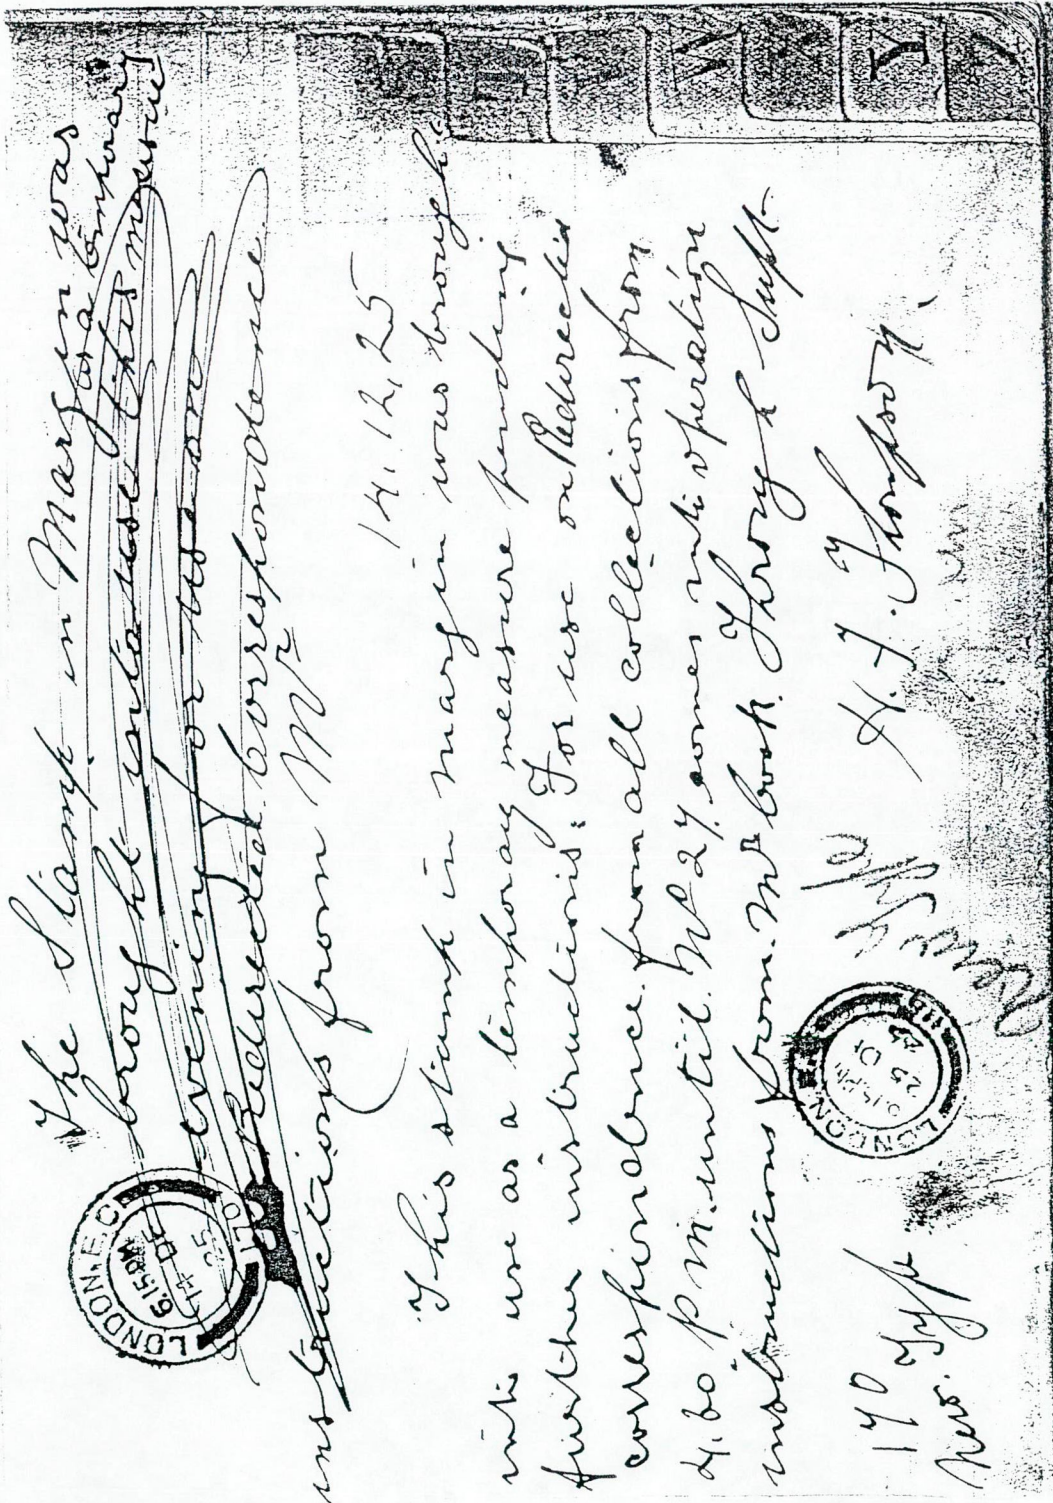 The Stamp in Margin was
brought into use this
as a temporary
measure
evening for use on
Redirected correspondence
instructions from Mr
14.12.25
This stamp in margin was brought
into use as a temporary measure pending
further instructions: For use on Redirected
correspondence from all collections from
4.30 p.m. until No 27. comes into operation
instructions from Mr Cook. Through Supt.
H. J. Thompson.
LONDON. E.C.
6.15 PM
14 DE
25
170
New Type
LONDON E.
6.15 PM
DE
25
New Type
W
X
Y